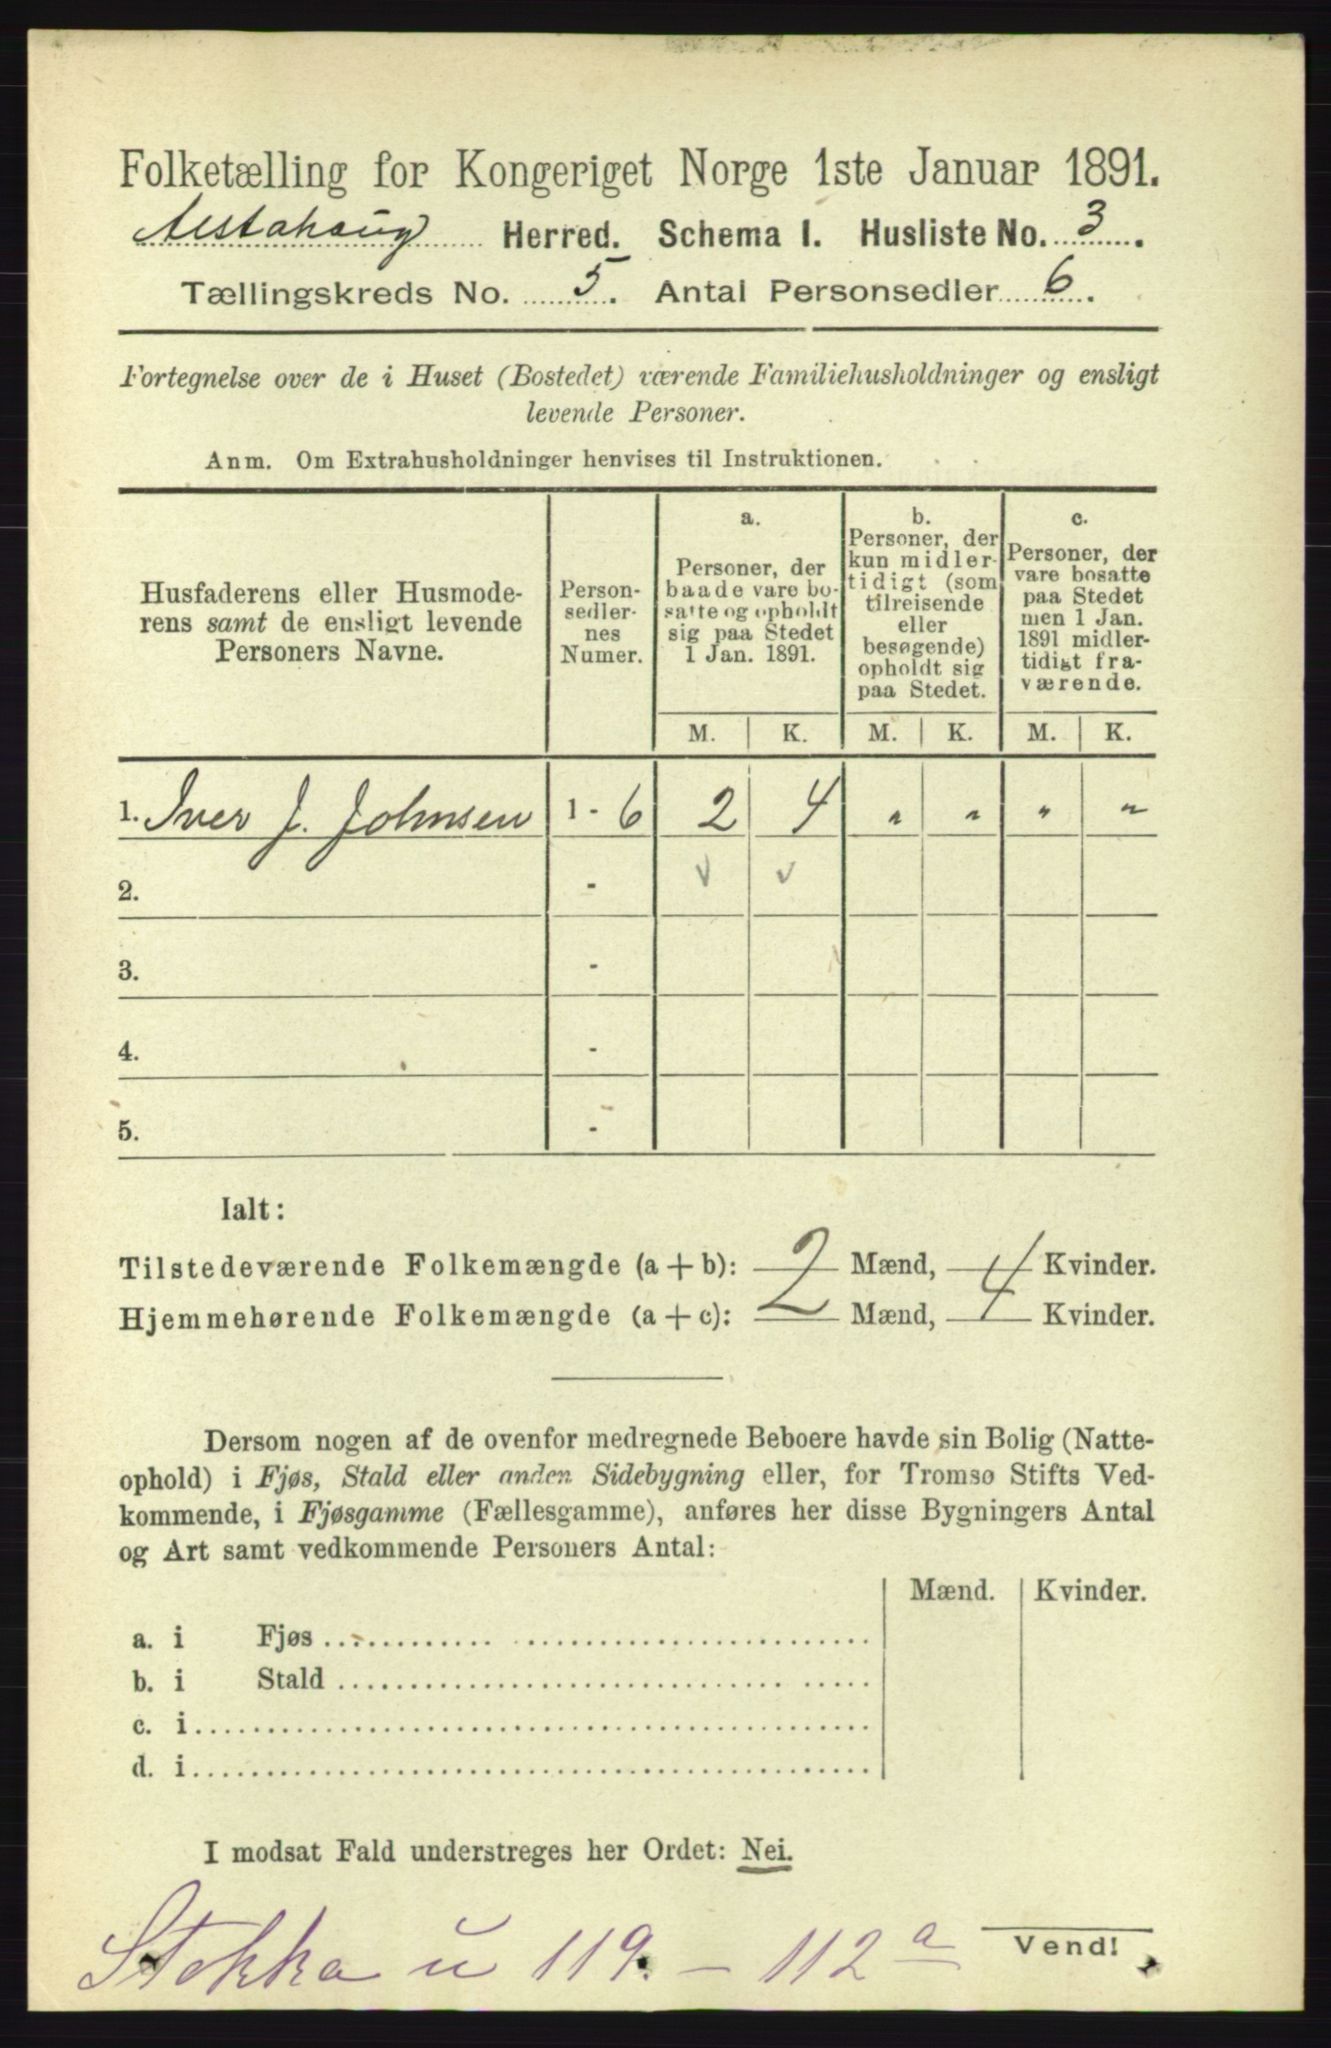 Folketælling for Kongeriget Norge 1ste Januar 1891.
Alstahaug Herred. Schema I. Husliste No. 3.
Tællingskreds No. 5. Antal Personsedler 6.
Fortegnelse over de i Huset (Bostedet) værende Familiehusholdninger og ensligt
levende Personer.
Anm. Om Extrahusholdninger henvises til Instruktionen.
Husfaderens eller Husmode-
rens samt de ensligt levende
Personers Navne.
Person-
sedler-
nes
Numer.
a.
Personer, der
baade vare bo-
satte og opholdt
sig paa Stedet
1 Jan. 1891.
b.
Personer, der
kun midler-
tidigt (som
tilreisende
eller
besøgende)
opholdt sig
paa Stedet.
c.
Personer, der
vare bosatte
paa Stedet
men 1 Jan.
1891 midler-
tidigt fra-
værende.
M. K. M. K. M. K.
1. Iver J. Johnsen 1 - 6 2 4 „ „ „ „
2. - v v
3. -
4. -
5. -
Ialt:
Tilstedeværende Folkemængde (a + b): 2 Mænd, 4 Kvinder.
Hjemmehørende Folkemængde (a + c): 2 Mænd, 4 Kvinder.
Dersom nogen af de ovenfor medregnede Beboere havde sin Bolig (Natte-
ophold) i Fjøs, Stald eller anden Sidebygning eller, for Tromsø Stifts Ved-
kommende, i Fjøsgamme (Fællesgamme), anføres her disse Bygningers Antal
og Art samt vedkommende Personers Antal:
Mænd. Kvinder.
a. i Fjøs
b. i Stald
c. i
d. i
I modsat Fald understreges her Ordet: Nei.
Vend!
Stokka u 119. - 112 a